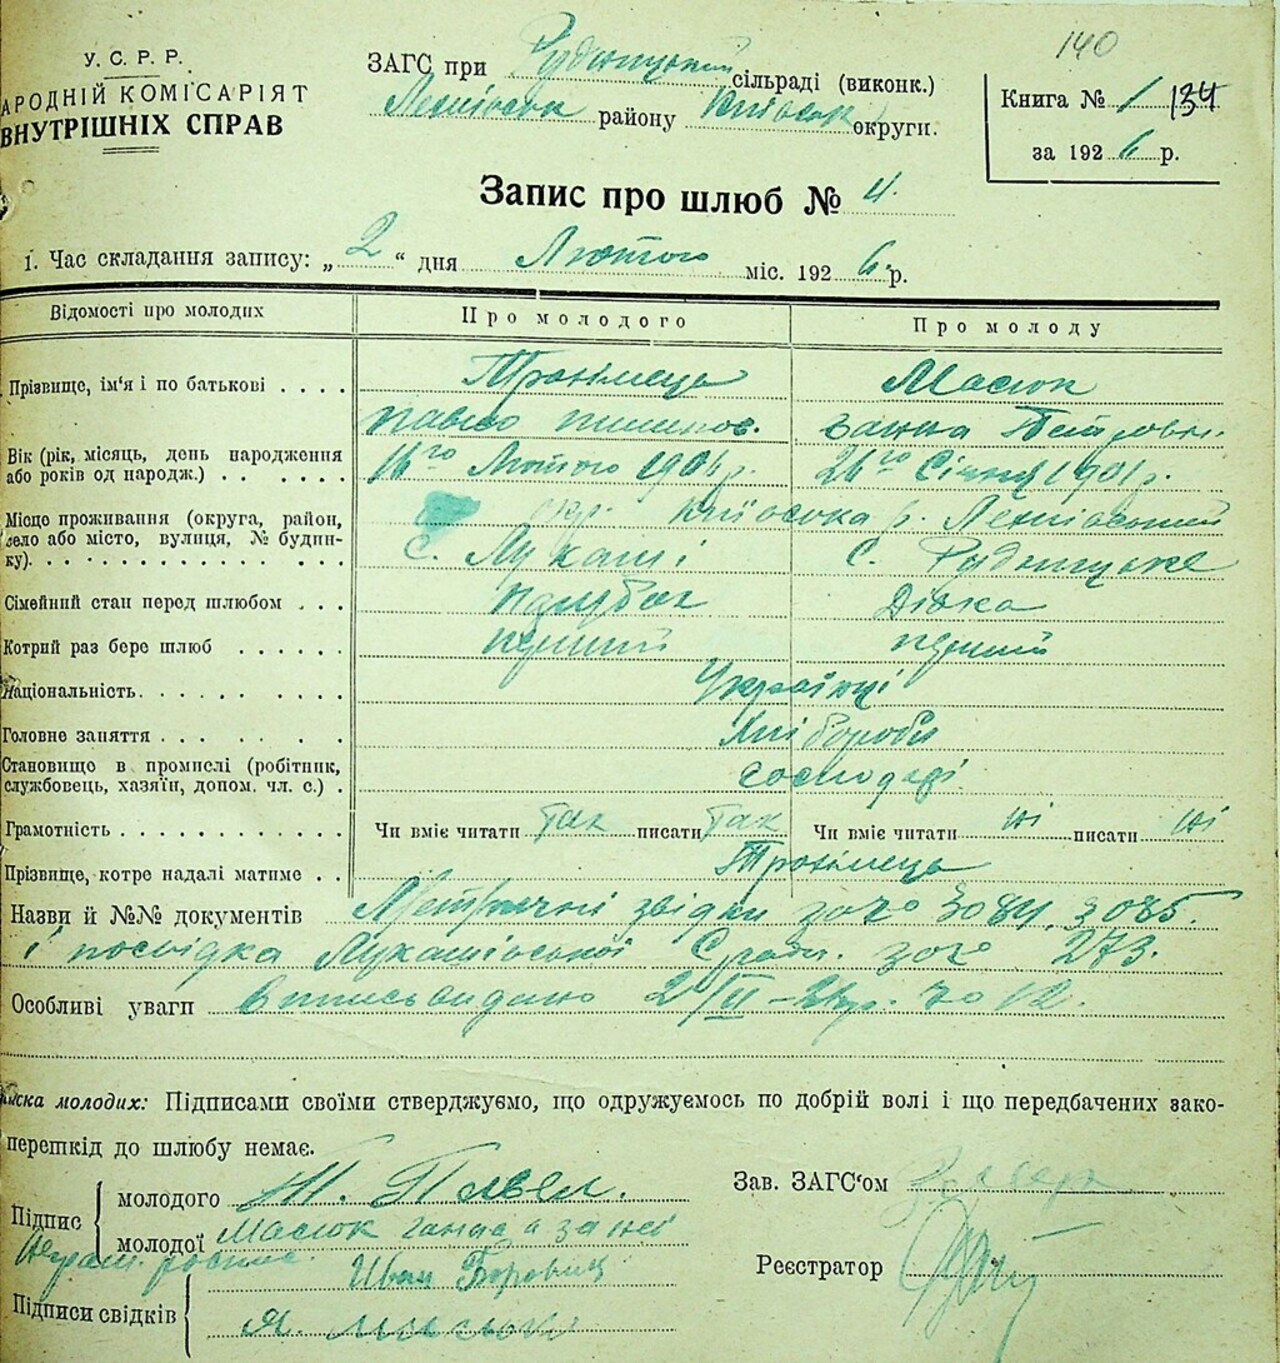 140
У. С. Р. Р.
АРОДНІЙ КОМІСАРІЯТ
ВНУТРІШНІХ СПРАВ
ЗАГС при Рудницький сільраді (виконк.)
району округи.
Книга № 1 134
за 1926 р.
Запис про шлюб № 4.
1. Час складання запису: „2“ дня Лютого міс. 1926 р.
Відомості про молодих Про молодого Про молоду
Прізвище, ім'я і по батькові . . . . Масюк
Павло Ганна Петровн.
Вік (рік, місяць, день народження
або років од народж.) . . . . . . 16го Лютого 1906 р. 26го Січня 1901 р.
Місце проживання (округа, район,
село або місто, вулиця, № будин-
ку). . . . . . . . . . . . . . с. Лукаші с. Рудницьке
окр. Київська р.
Сімейний стан перед шлюбом . . . Парубок Дівка
Котрий раз бере шлюб . . . . . . перший перший
Національність. . . . . . . . . Українці
Головне заняття . . . . . . . Хлібороби
Становище в промислі (робітник,
службовець, хазяїн, допом. чл. с.) . господарі
Грамотність . . . . . . . . . . . . Чи вміє читати так писати так Чи вміє читати ні писати ні
Прізвище, котре надалі матиме . .
Назви й №№ документів Метричні звідки за № 3084, 3085.
і посвідка Лукашівської С/ради. за № 273.
Особливі уваги Виписъ видано 2/II - 26 р. № 12.
иска молодих: Підписами своїми стверджуємо, що одружуємось по добрій волі і що передбачених зако-
перешкід до шлюбу немає.
Підпис
молодого Т. Павел.
молодої Масюк Ганна а за неї
Неграм. росписа.
Підписи свідків
Иван Боровик
Я. Масюк
Зав. ЗАГС'ом
Реєстратор